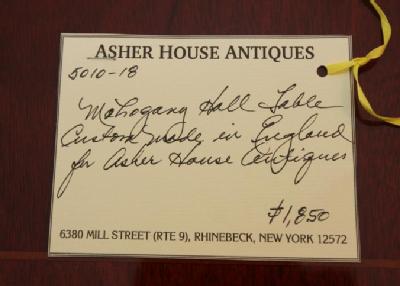 ASHER HOUSE ANTIQUES
5010-18
Mahogany Hall Table
Custom made in England
for Asher House Antiques
$1,850
6380 MILL STREET (RTE 9), RHINEBECK, NEW YORK 12572